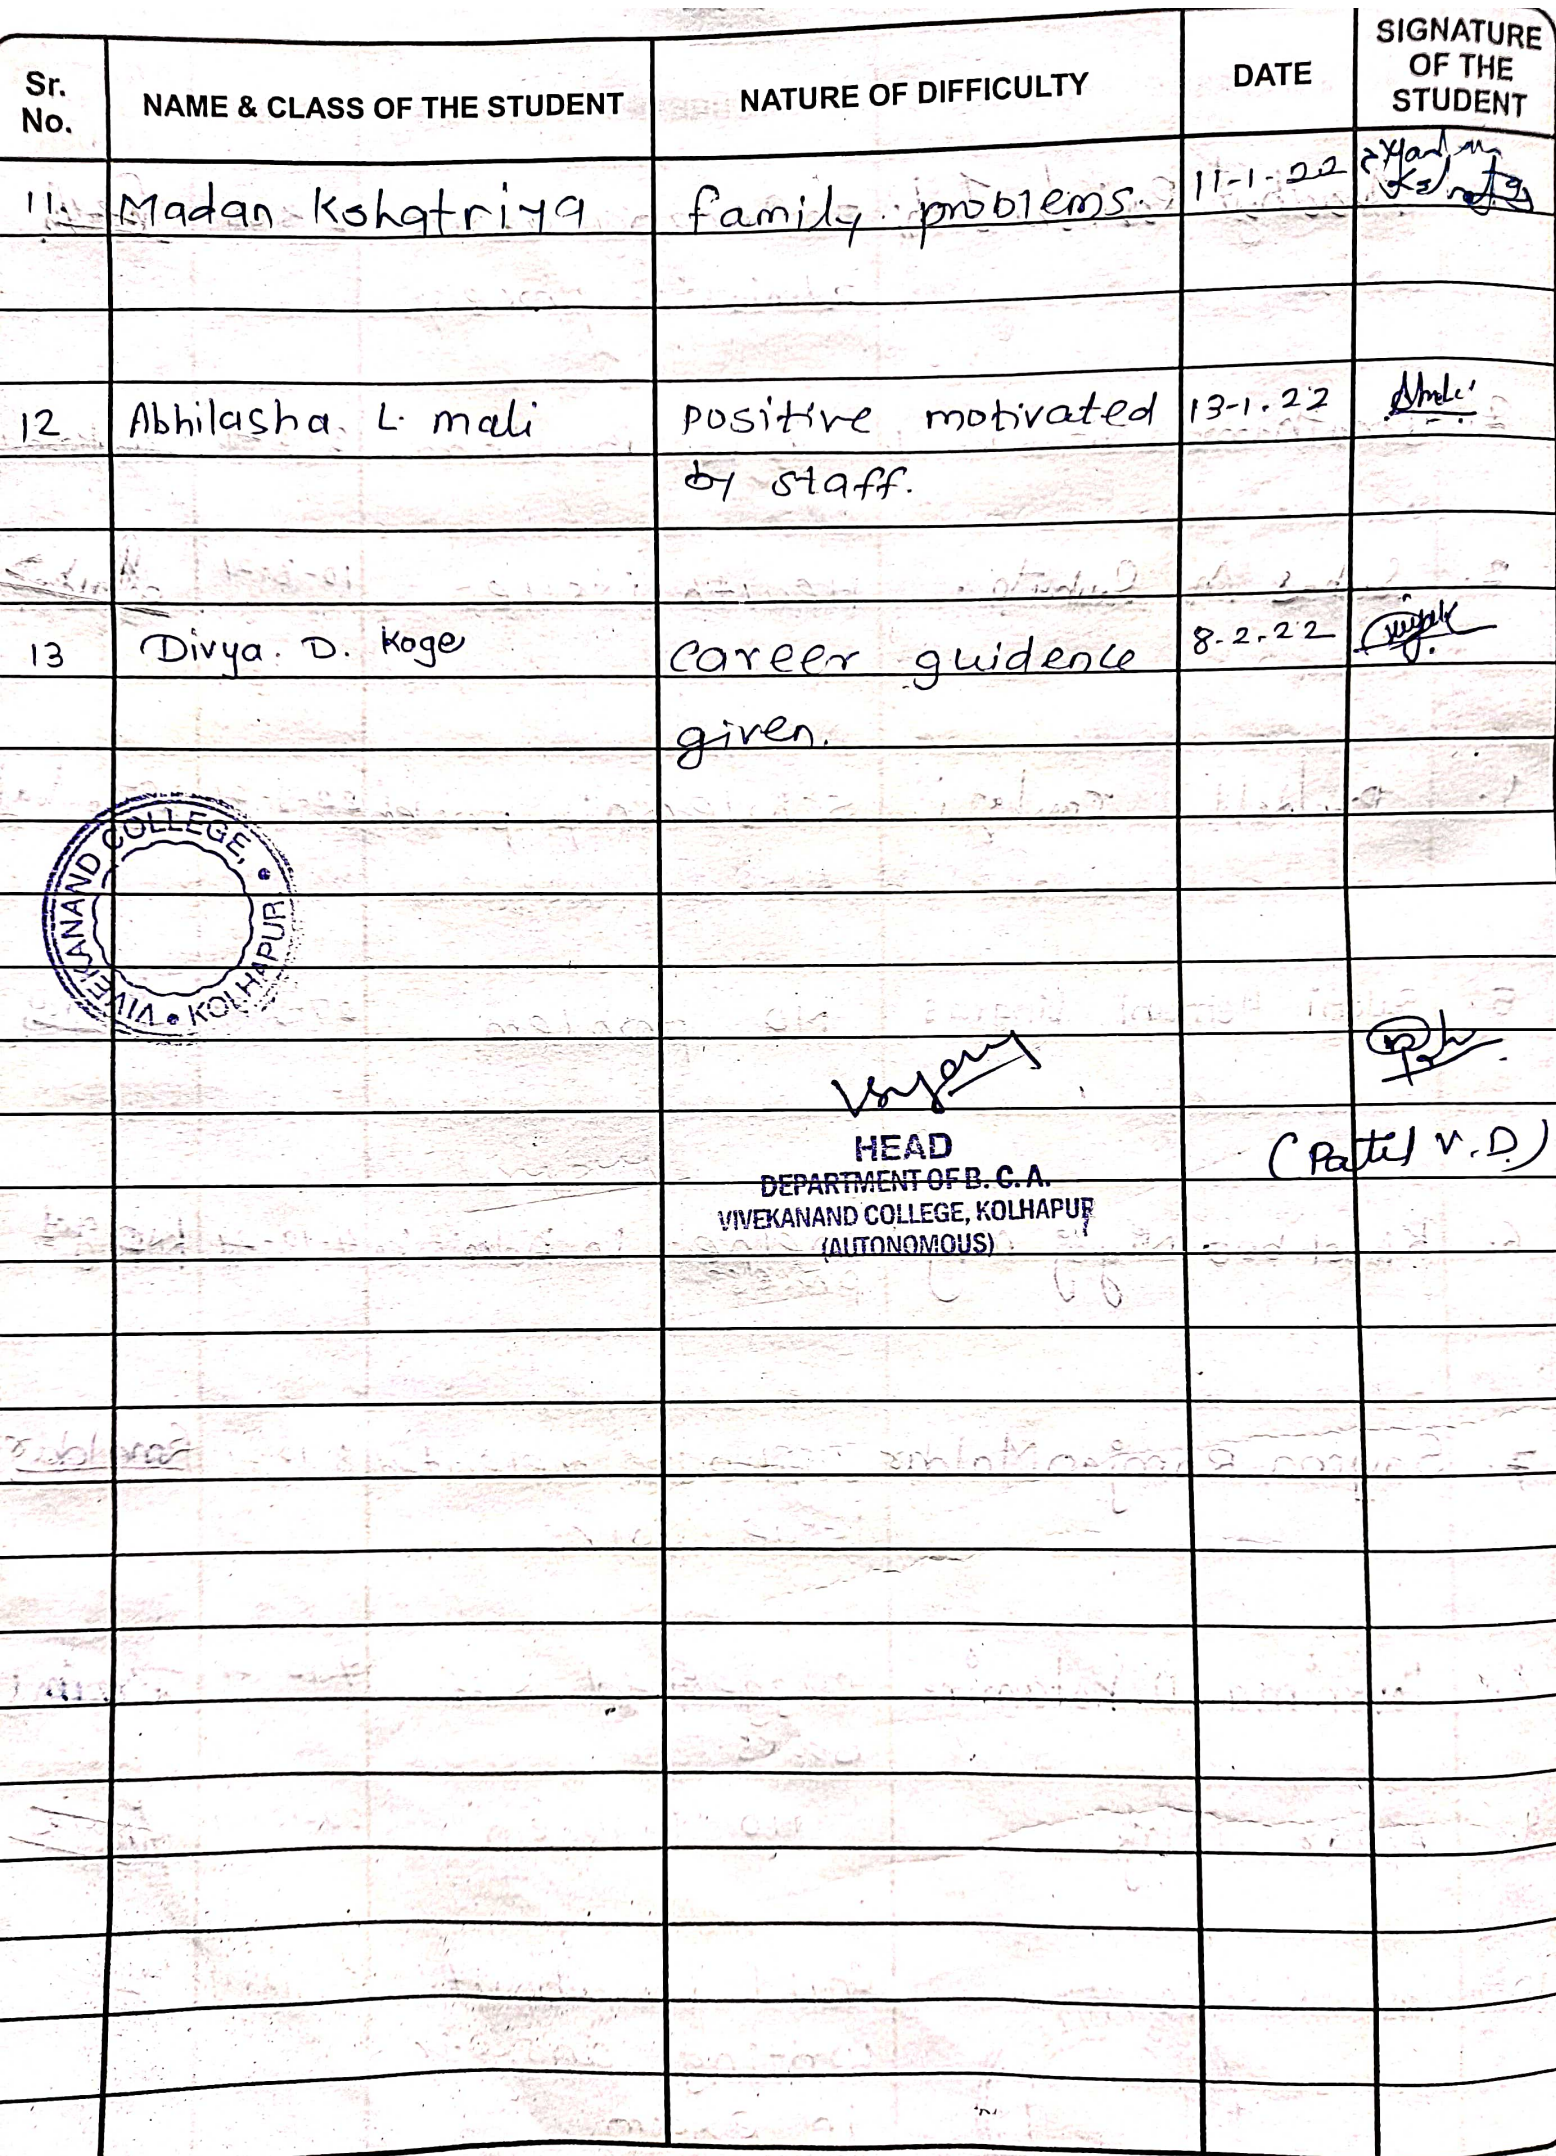 Sr. No. NAME & CLASS OF THE STUDENT NATURE OF DIFFICULTY DATE SIGNATURE OF THE STUDENT
11. Madan Kshatriya family problems. 11-1-22
12 Abhilasha L. mali positive motivated 13-1.22
by staff.
13 Divya. D. Koge career guidence 8-2-22
given.
VIVEKANAND COLLEGE, • KOLHAPUR •
HEAD
DEPARTMENT OF B. C. A.
VIVEKANAND COLLEGE, KOLHAPUR
(AUTONOMOUS)
(Patil V.D)